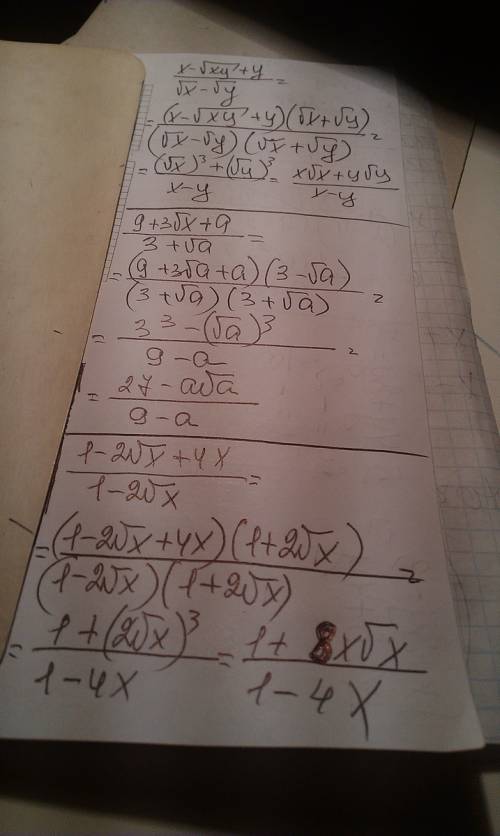 x-√xy+y / √x-√y =
= (x-√xy+y)(√x+√y) / (√x-√y)(√x+√y) =
= (√x)³+(√y)³ / x-y = x√x+y√y / x-y
9+3√x+a / 3+√a =
= (9+3√a+a)(3-√a) / (3+√a)(3+√a) =
= 3³-(√a)³ / 9-a =
= 27-a√a / 9-a
1-2√x+4x / 1-2√x =
= (1-2√x+4x)(1+2√x) / (1-2√x)(1+2√x) =
= 1+(2√x)³ / 1-4x = 1+8x√x / 1-4x